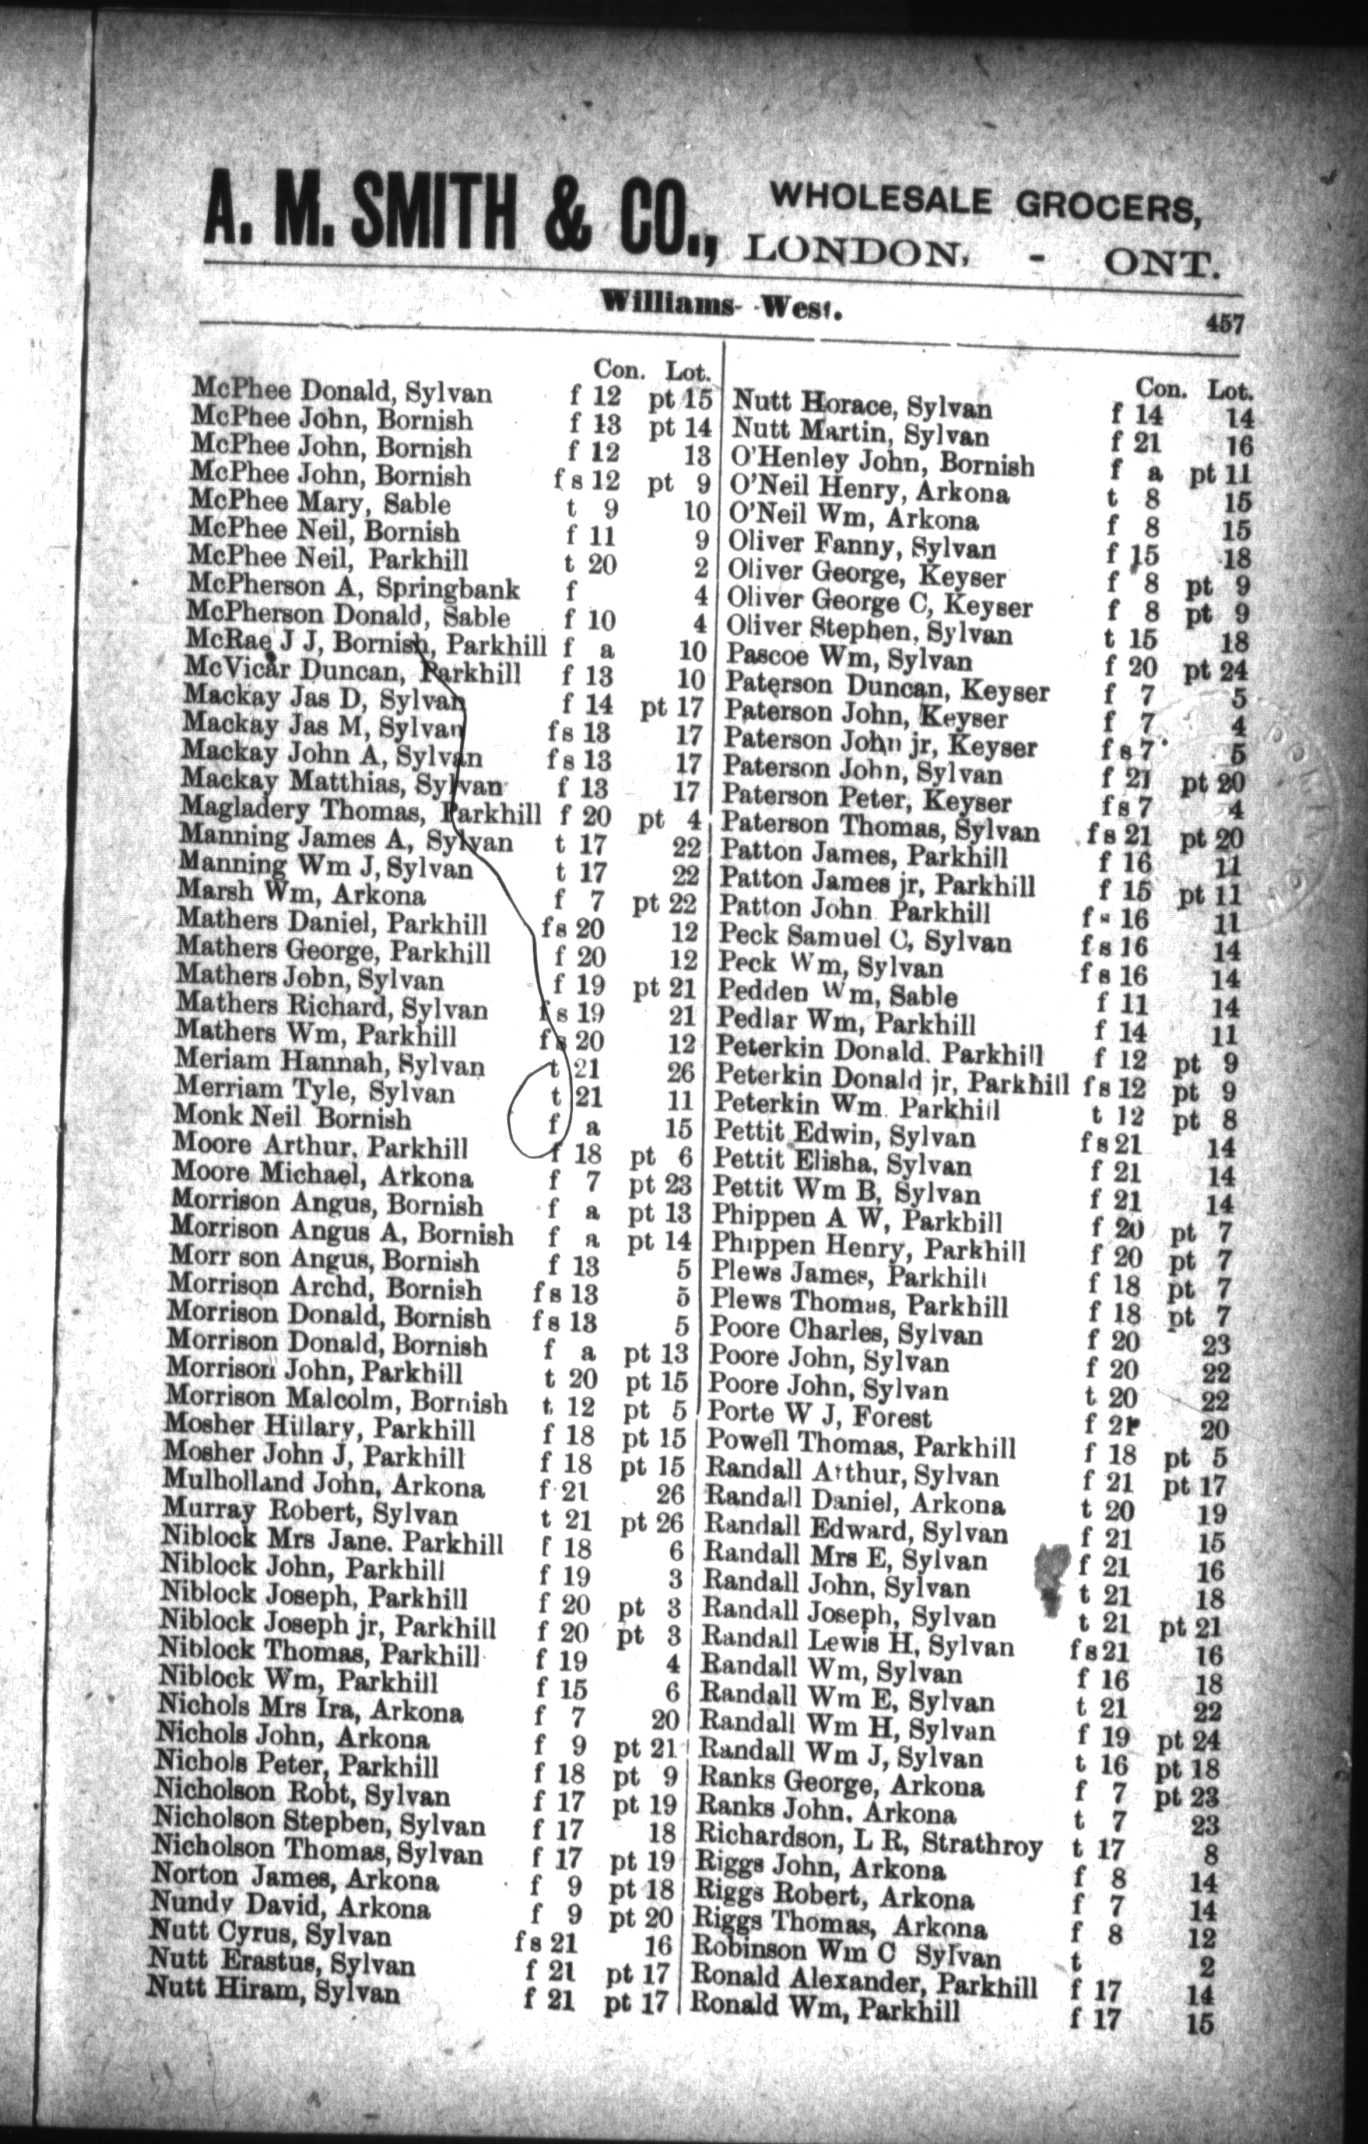 A. M. SMITH & CO., WHOLESALE GROCERS,
LONDON, - ONT.
Williams- -West.
457
Con. Lot.
McPhee Donald, Sylvan f 12 pt 15
McPhee John, Bornish f 13 pt 14
McPhee John, Bornish f 12 13
McPhee John, Bornish f s 12 pt 9
McPhee Mary, Sable t 9 10
McPhee Neil, Bornish f 11 9
McPhee Neil, Parkhill t 20 2
McPherson A, Springbank f 4
McPherson Donald, Sable f 10 4
McRae J J, Bornish, Parkhill f a 10
McVicar Duncan, Parkhill f 13 10
Mackay Jas D, Sylvan f 14 pt 17
Mackay Jas M, Sylvan f s 13 17
Mackay John A, Sylvan f s 13 17
Mackay Matthias, Sylvan f 13 17
Magladery Thomas, Parkhill f 20 pt 4
Manning James A, Sylvan t 17 22
Manning Wm J, Sylvan t 17 22
Marsh Wm, Arkona f 7 pt 22
Mathers Daniel, Parkhill f s 20 12
Mathers George, Parkhill f 20 12
Mathers John, Sylvan f 19 pt 21
Mathers Richard, Sylvan f s 19 21
Mathers Wm, Parkhill f s 20 12
Meriam Hannah, Sylvan t 21 26
Merriam Tyle, Sylvan t 21 11
Monk Neil Bornish f a 15
Moore Arthur. Parkhill f 18 pt 6
Moore Michael, Arkona f 7 pt 23
Morrison Angus, Bornish f a pt 13
Morrison Angus A, Bornish f a pt 14
Morr son Angus, Bornish f 13 5
Morrison Archd, Bornish f s 13 5
Morrison Donald, Bornish f s 13 5
Morrison Donald, Bornish f a pt 13
Morrison John, Parkhill t 20 pt 15
Morrison Malcolm, Bornish t 12 pt 5
Mosher Hillary, Parkhill f 18 pt 15
Mosher John J, Parkhill f 18 pt 15
Mulholland John, Arkona f 21 26
Murray Robert, Sylvan t 21 pt 26
Niblock Mrs Jane. Parkhill f 18 6
Niblock John, Parkhill f 19 3
Niblock Joseph, Parkhill f 20 pt 3
Niblock Joseph jr, Parkhill f 20 pt 3
Niblock Thomas, Parkhill f 19 4
Niblock Wm, Parkhill f 15 6
Nichols Mrs Ira, Arkona f 7 20
Nichols John, Arkona f 9 pt 21
Nichols Peter, Parkhill f 18 pt 9
Nicholson Robt, Sylvan f 17 pt 19
Nicholson Stephen, Sylvan f 17 18
Nicholson Thomas, Sylvan f 17 pt 19
Norton James, Arkona f 9 pt 18
Nundy David, Arkona f 9 pt 20
Nutt Cyrus, Sylvan f s 21 16
Nutt Erastus, Sylvan f 21 pt 17
Nutt Hiram, Sylvan f 21 pt 17
Con. Lot.
Nutt Horace, Sylvan f 14 14
Nutt Martin, Sylvan f 21 16
O'Henley John, Bornish f a pt 11
O'Neil Henry, Arkona t 8 15
O'Neil Wm, Arkona f 8 15
Oliver Fanny, Sylvan f 15 18
Oliver George, Keyser f 8 pt 9
Oliver George C, Keyser f 8 pt 9
Oliver Stephen, Sylvan t 15 18
Pascoe Wm, Sylvan f 20 pt 24
Paterson Duncan, Keyser f 7 5
Paterson John, Keyser f 7 4
Paterson John jr, Keyser f s 7 5
Paterson John, Sylvan f 21 pt 20
Paterson Peter, Keyser f s 7 4
Paterson Thomas, Sylvan f s 21 pt 20
Patton James, Parkhill f 16 11
Patton James jr, Parkhill f 15 pt 11
Patton John Parkhill f s 16 11
Peck Samuel C, Sylvan f s 16 14
Peck Wm, Sylvan f s 16 14
Pedden Wm, Sable f 11 14
Pedlar Wm, Parkhill f 14 11
Peterkin Donald. Parkhill f 12 pt 9
Peterkin Donald jr, Parkhill f s 12 pt 9
Peterkin Wm. Parkhill t 12 pt 8
Pettit Edwin, Sylvan f s 21 14
Pettit Elisha, Sylvan f 21 14
Pettit Wm B, Sylvan f 21 14
Phippen A W, Parkhill f 20 pt 7
Phippen Henry, Parkhill f 20 pt 7
Plews James, Parkhill f 18 pt 7
Plews Thomas, Parkhill f 18 pt 7
Poore Charles, Sylvan f 20 23
Poore John, Sylvan f 20 22
Poore John, Sylvan t 20 22
Porte W J, Forest f 21 20
Powell Thomas, Parkhill f 18 pt 5
Randall Arthur, Sylvan f 21 pt 17
Randall Daniel, Arkona t 20 19
Randall Edward, Sylvan f 21 15
Randall Mrs E, Sylvan f 21 16
Randall John, Sylvan t 21 18
Randall Joseph, Sylvan t 21 pt 21
Randall Lewis H, Sylvan f s 21 16
Randall Wm, Sylvan f 16 18
Randall Wm E, Sylvan t 21 22
Randall Wm H, Sylvan f 19 pt 24
Randall Wm J, Sylvan t 16 pt 18
Ranks George, Arkona f 7 pt 23
Ranks John, Arkona t 7 23
Richardson, L R, Strathroy t 17 8
Riggs John, Arkona f 8 14
Riggs Robert, Arkona f 7 14
Riggs Thomas, Arkona f 8 12
Robinson Wm C Sylvan t 2
Ronald Alexander, Parkhill f 17 14
Ronald Wm, Parkhill f 17 15